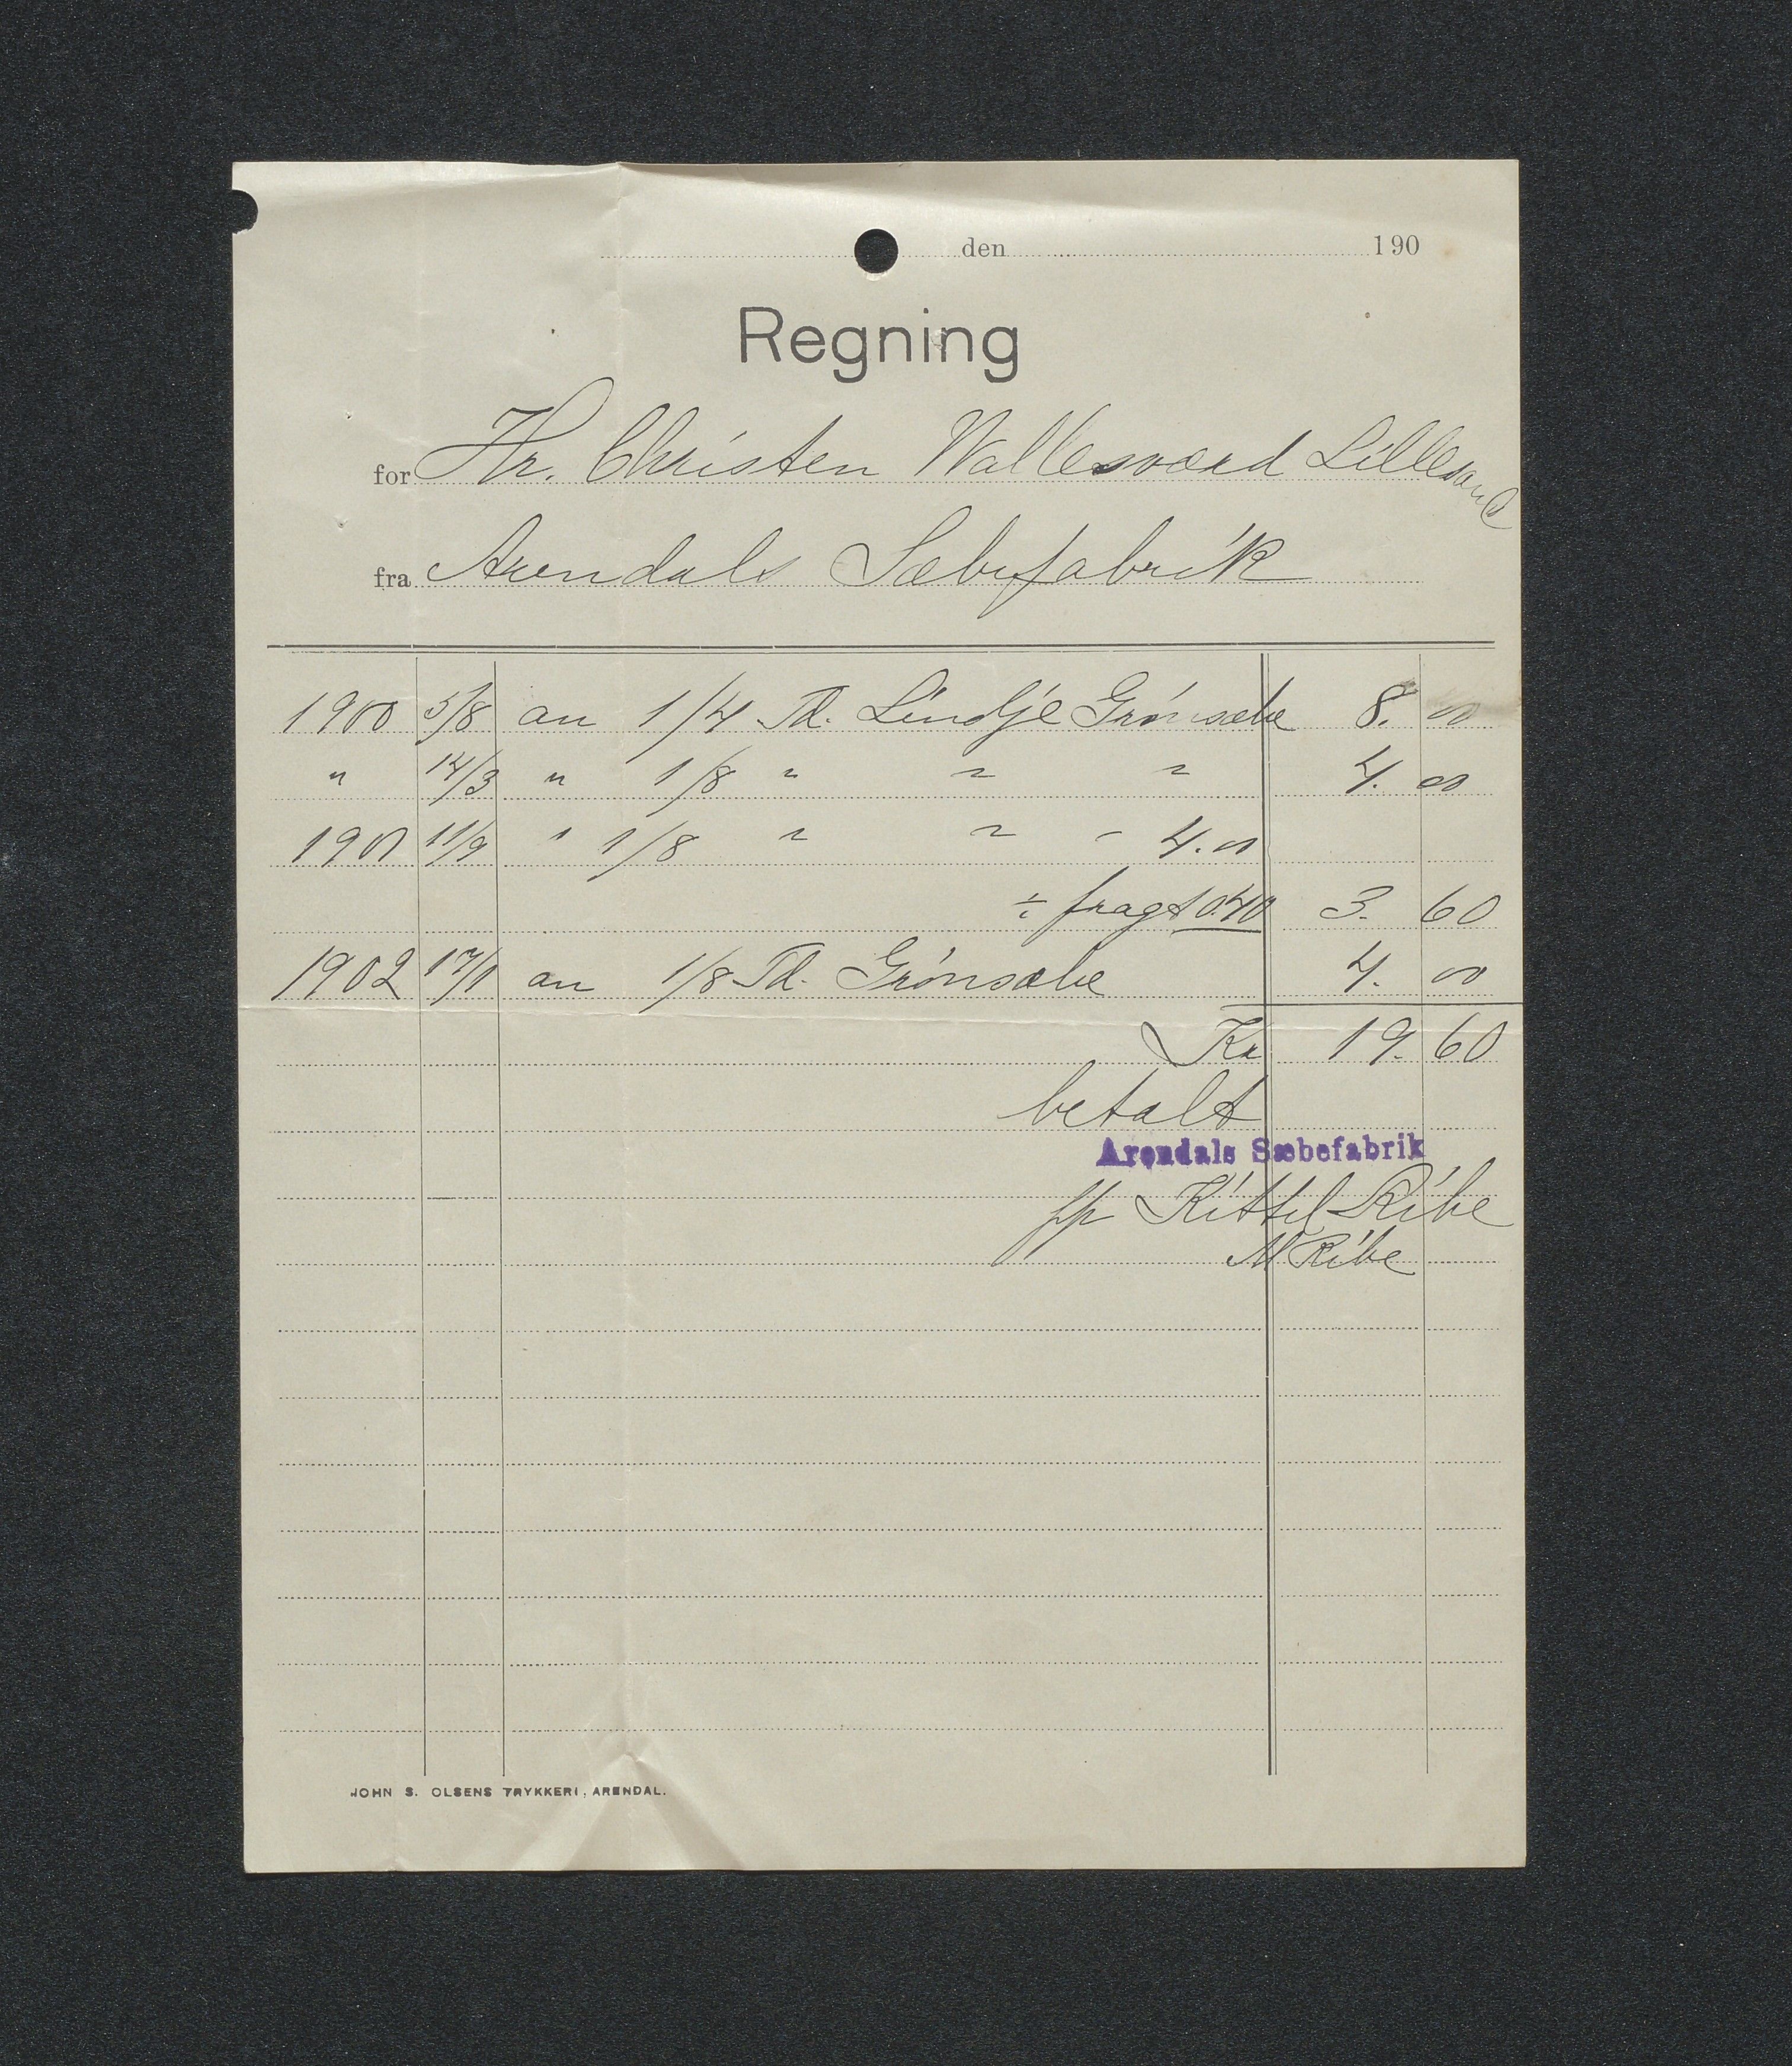 den 190
Regning
for Hr. Christen Vallesværd Lillesand
fra Arendals Sæbefabrik
1900 5/8 an 1/4 Td. Lindlje Grønsæbe 8. 00
" 14/3 " 1/8 " " " 4. 00
1901 11/9 " 1/8 " " " 4.00
÷ fragt 0.40 3. 60
1902 17/1 an 1/8 Td. Grønsæbe 4. 00
Kr 19. 60
betalt
Arendals Sæbefabrik
pp Kittel Ribe
M Ribe
JOHN S. OLSENS TRYKKERI, ARENDAL.